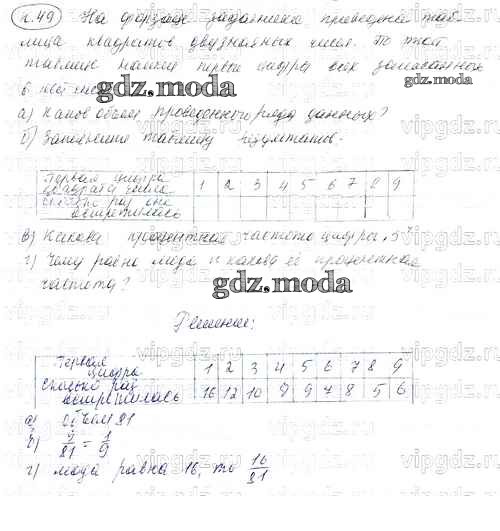 п.49) На форзаце задачника приведена таб-
лица квадратов двузначных чисел. По этой
таблице нашли первые цифры всех записанных
в ней
gdz.moda
а) Каков объем приведенного ряда данных?
б) Заполните таблицу результатов.
Первая цифра квадрата числа 1 2 3 4 5 6 7 8 9
Сколько раз она встретилась
в) Какова процентная частота цифры „5"?
г) Чему равна мода и какова её процентная
частота?
gdz.moda
Решение:
Первая цифра 1 2 3 4 5 6 7 8 9
Сколько раз встретилась 16 12 10 9 9 7 8 5 6
а) Объем 81
б) 9/81 = 1/9
г) мода равна 16, то 16/81
gdz.moda